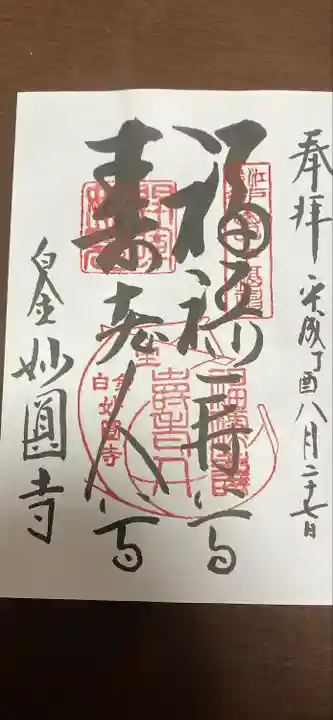 奉拝 平成丁酉八月二十七日
福禄壽尊
壽老人尊
白金妙圓寺
白金
妙圓寺